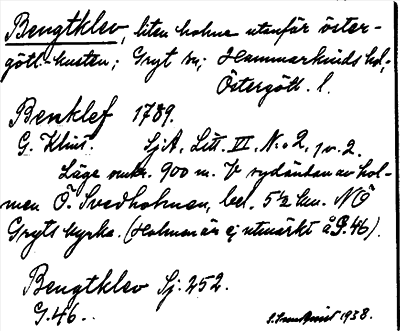 Bengtklev, liten holme utanför öster-
götl-kusten; Gryt sn; Hammarkinds hd;
Östergötl. l.
Benklef 1789.
G. Klint. SjA. Litt. VI N:o 2, 1 v. 2.
Läge omkr. 900 m. V sydändan av hol-
men Ö. Svedholmen, bel. 5½ km. NÖ
Gryts kyrka. (Holmen är ej utmärkt å G. 46).
Bengtklev Sj. 252.
G. 46.
1938.